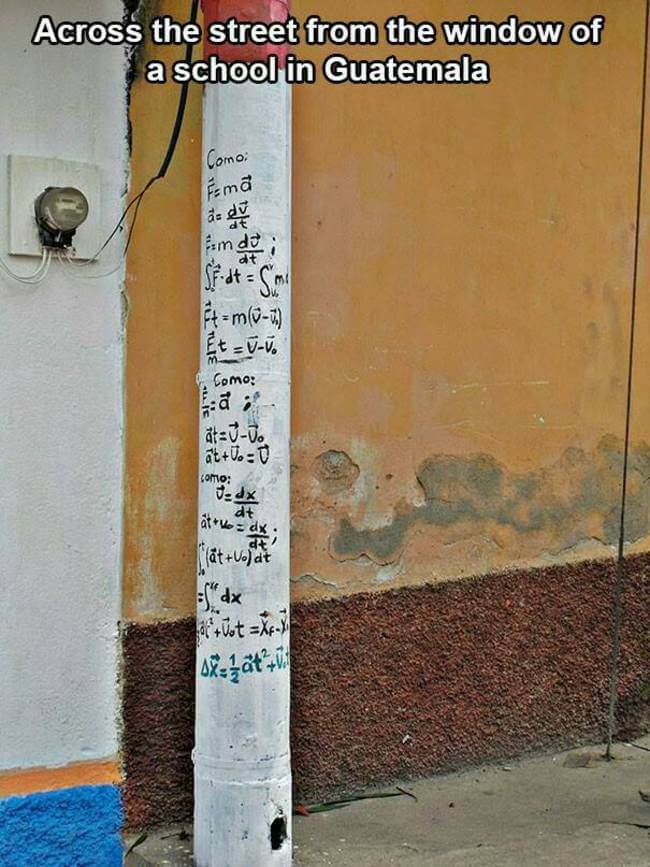 Across the street from the window of
a school in Guatemala
Como:
F⃗=ma⃗
a⃗=dv⃗/dt
F⃗=m dv⃗/dt ;
∫F⃗·dt = ∫m
F⃗t=m(v⃗-v⃗₀)
F⃗/m t = v⃗-v⃗₀
Como:
F⃗/m=a⃗ ;
a⃗t=v⃗-v⃗₀
a⃗t+v⃗₀=v⃗
como:
v⃗=dx/dt
a⃗t+v₀=dx/dt ;
∫(a⃗t+v₀)dt
=∫dx
+v⃗₀t =x⃗F-x⃗
Δx⃗=1/2 a⃗t²+v⃗.t